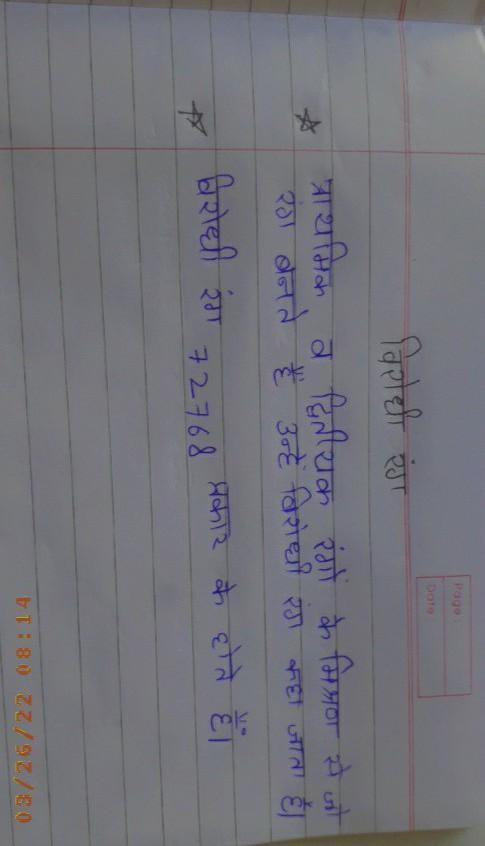 Page :
Date
विरोधी रंग
☆ प्राथमिक व द्वितीयक रंगों के मिश्रण से जो
रंग बनते हैं उन्हें विरोधी रंग कहा जाता हैं।
☆ विरोधी रंग 72768 प्रकार के होते हैं।
03/26/22 08:14